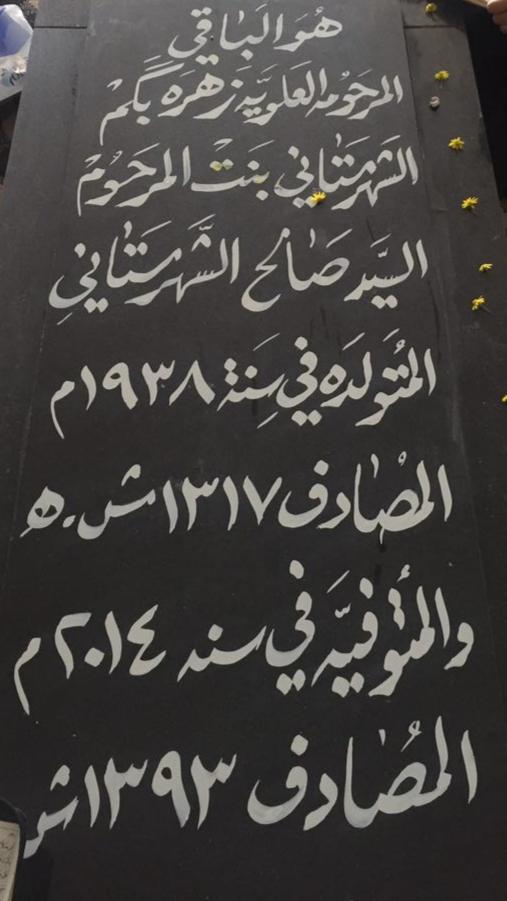 هُوَ البَاقي
المرحُومه العَلويَّه زهرَه بگمْ
الشَهرستَاني بنتْ المرحُومْ
السيَّد صَالح الشَّهرستَانيِ
المُتَولدَه في سَنِة ١٩٣٨م
المصُادف ١٣١٧ش.ه
والمتُوفيَّه في سنه ٢٠١٤م
المصُادف ١٣٩٣ش